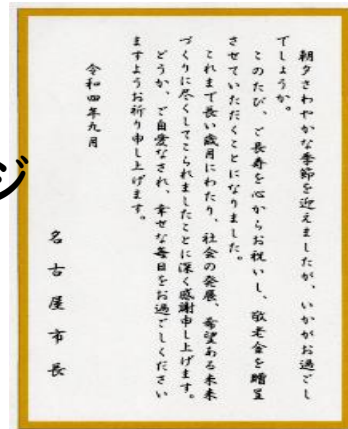 朝夕さわやかな季節を迎えましたが、いかがお過ごし
でしょうか。
このたび、ご長寿を心からお祝いし、敬老金を贈呈
させていただくことになりました。
これまで長い歳月にわたり、社会の発展、希望ある未来
づくりに尽くしてこられましたことに深く感謝申し上げます。
どうか、ご自愛なされ、幸せな毎日をお過ごしください
ますようお祈り申し上げます。
令和四年九月
名古屋市長
ジ